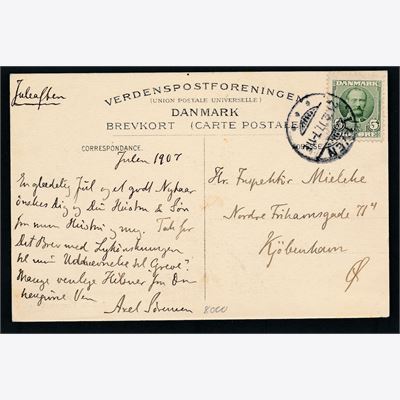 Juleaften
VERDENSPOSTFORENINGEN
(UNION POSTALE UNIVERSELLE)
DANMARK
BREVKORT (CARTE POSTALE)
DANMARK
5 ØRE
CORRESPONDANCE.
Julen 1907
En glædelig Jul og et godt Nytaar
ønskes Dig og Din Hustru & Søn
fra min Hustru og mig. Tak for
Dit Brev med Lykønskningen
til min Udnævnelse til Greve?
Mange venlige Hilsener fra Din
hengivne Ven
Axel Sørensen
8000
Hr. Inspektør Mielche
Nordre Frihavnsgade 71
Kjöbenhavn
Ø